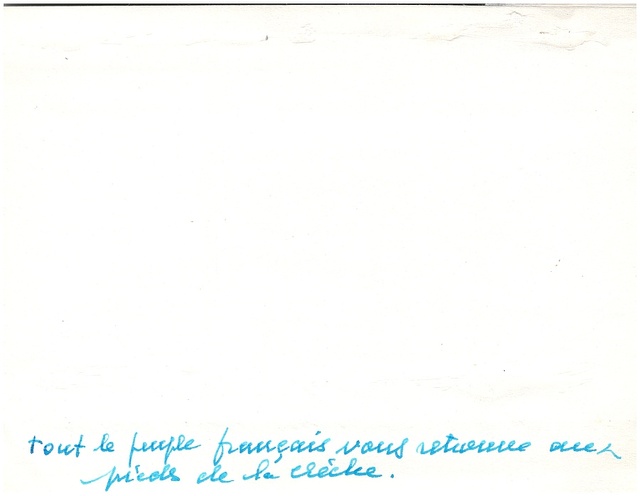 tout le peuple français vous retrouve aux
pieds de la crèche.